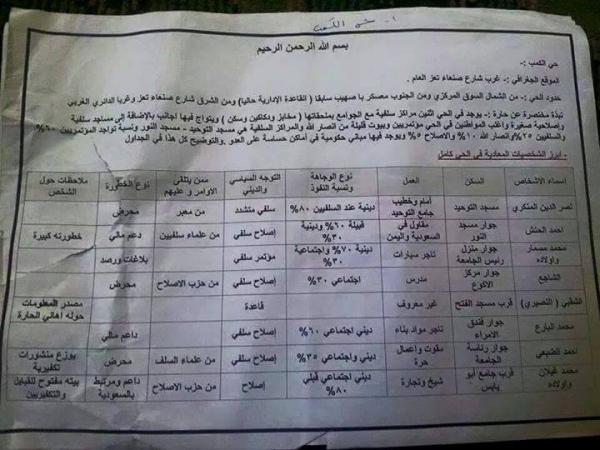 بسم الله الرحمن الرحيم
حي الكمب :-
الموقع الجغرافي :- غرب شارع صنعاء تعز العام .
حدود الحي :- من الشمال السوق المركزي ومن الجنوب معسكر با صهيب سابقا ( القاعدة الإدارية حاليا ) ومن الشرق شارع صنعاء تعز وغربا الدائري الغربي
نبذة مختصرة عن حارة :- يوجد في الحي اثنين مراكز سلفية مع الجوامع بملحقاتها ( مخابز ودكاكين وسكن ) ويتواج فيها اجانب بالإضافة إلى مساجد سلفية
واصلاحية صغيرة واغلب المواطنين في الحي مؤتمريين وبيوت قليلة من انصار الله والمراكز السلفية هي مسجد التوحيد - مسجد النور ونسبة تواجد المؤتمريين ٦٠%
والسلفيين ٢٥% وانصار الله ١٠% والاصلاح ٥% ويوجد فيها مباني حكومية في أماكن حساسة على العدو . والتوضيح كل هذا في الجداول
- ابرز الشخصيات المعادية في الحي كامل
اسماء الأشخاص السكن العمل نوع الوجاهة ونسبة النفوذ التوجه السياسي والديني ممن يتلقى الاوامر و عليهم نوع الخطورة ملاحظات حول الشخص
نصر الدين المنكري مسجد التوحيد أمام وخطيب جامع التوحيد دينية عند السلفيين ٨٠% سلفي متشدد من معبر محرض
احمد الحنش جوار مسجد النور مقاول في السعودية واليمن قبيلة ٦٠% ودينية ٣٠% إصلاح سلفي من علماء سلفيين دعم مالي خطورته كبيرة
محمد مسمار واولاده جوار منزل رئيس الجامعة تاجر سيارات دينية ٧٠% واجتماعية ٣٠% مؤتمر سلفي بلاغات ورصد
الشاجع جوار مركز الاكوع مدرس اجتماعي ٣٠% إصلاح سلفي من حزب الاصلاح محرض
الشقبي ( النصيري ) قرب مسجد الفتح غير معروف قاعدة مصدر المعلومات حوله أهالي الحارة
محمد البارع جوار فندق الامراء تاجر مواد بناء ديني اجتماعي ٦٠% إصلاح سلفي داعم مالي
احمد الضبعي جوار رئاسة الجامعة مقوت واعمال حرة ديني واجتماعي ٣٥% إصلاح سلفي من علماء السلف محرض يوزع منشورات تكفيرية
محمد غيلان واولاده قرب جامع أبو يابس شيخ وتجارة ديني اجتماعي قبلي ٨٠% إصلاح من حزب الاصلاح داعم ومرتبط بالسعودية بيته مفتوح للقبايل والتكفيريين